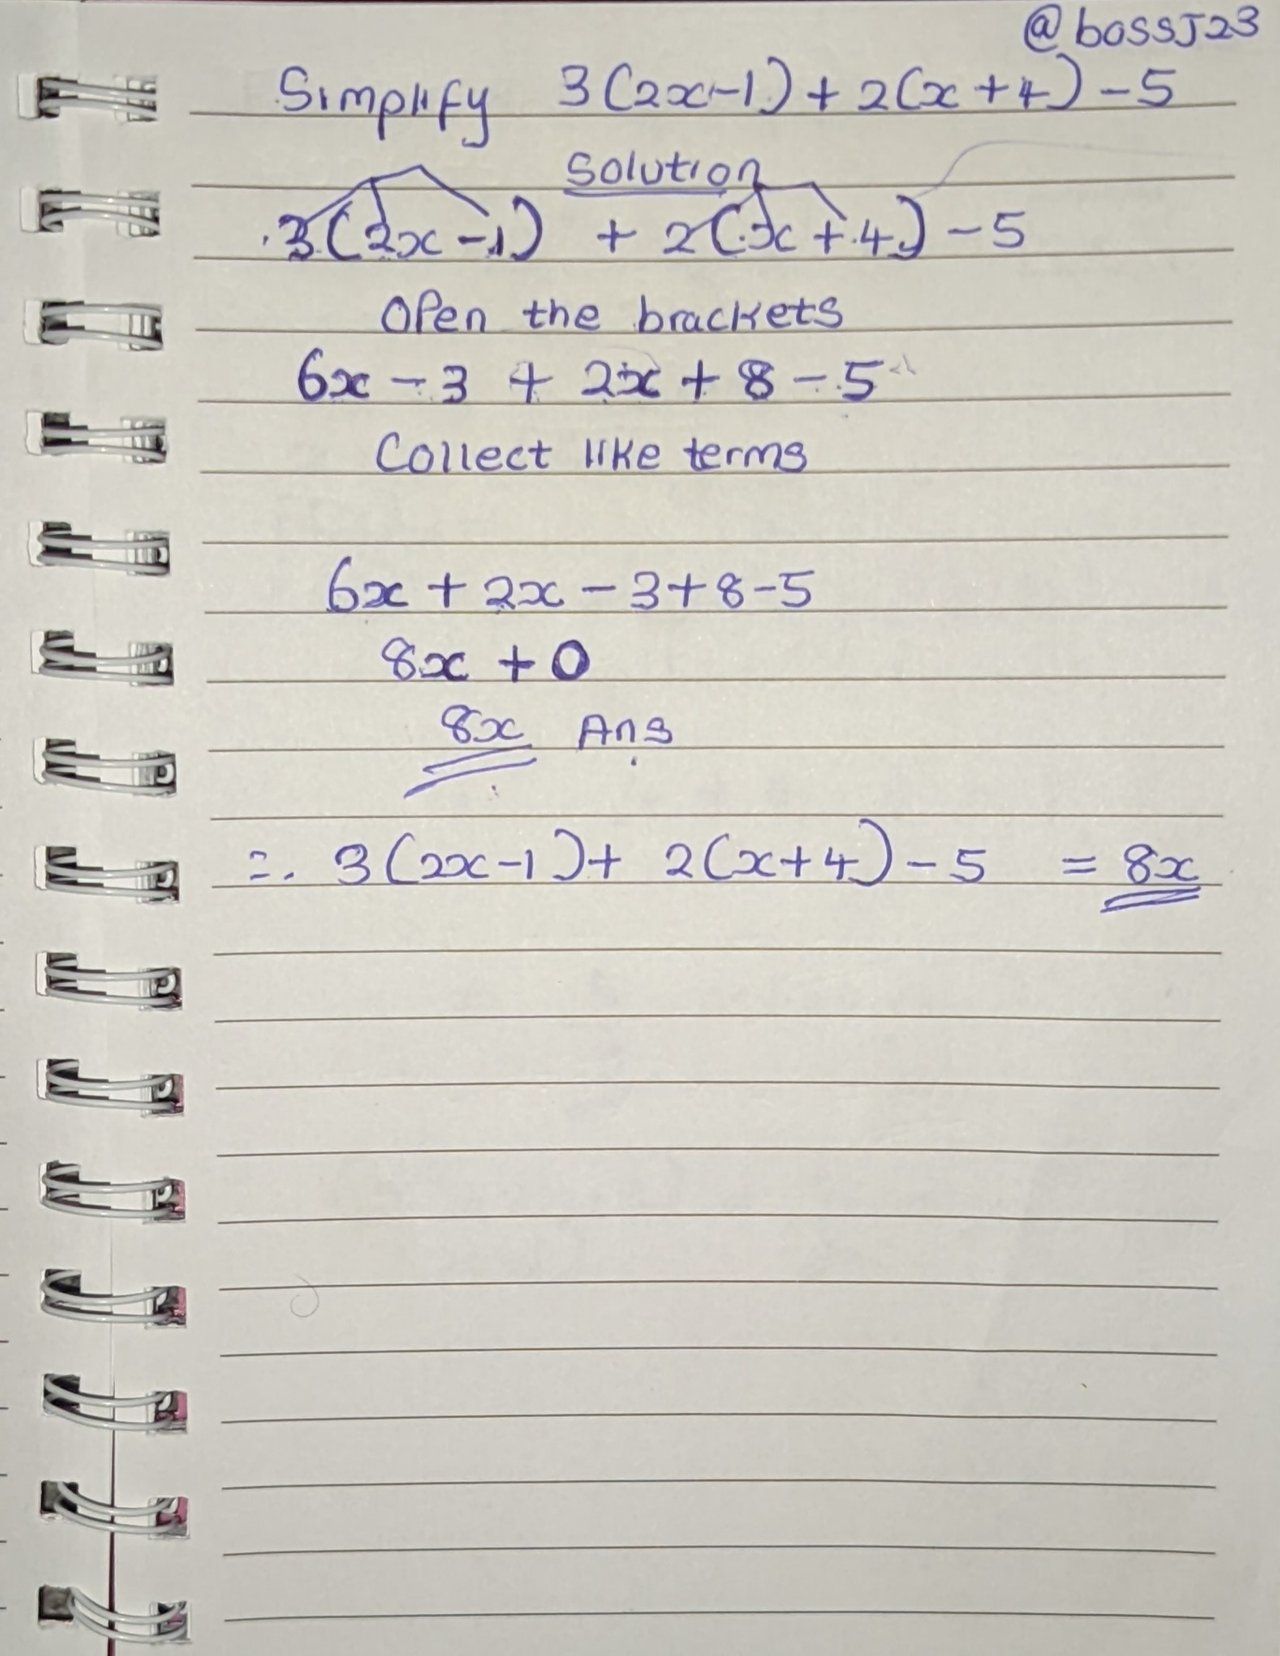 @bossJ23
Simplify 3(2x-1)+2(x+4)-5
Solution
3(2x-1) + 2(x+4)-5
Open the brackets
6x-3 + 2x+8-5
Collect like terms
6x+2x-3+8-5
8x+0
8x Ans
∴ 3(2x-1)+ 2(x+4)-5 = 8x